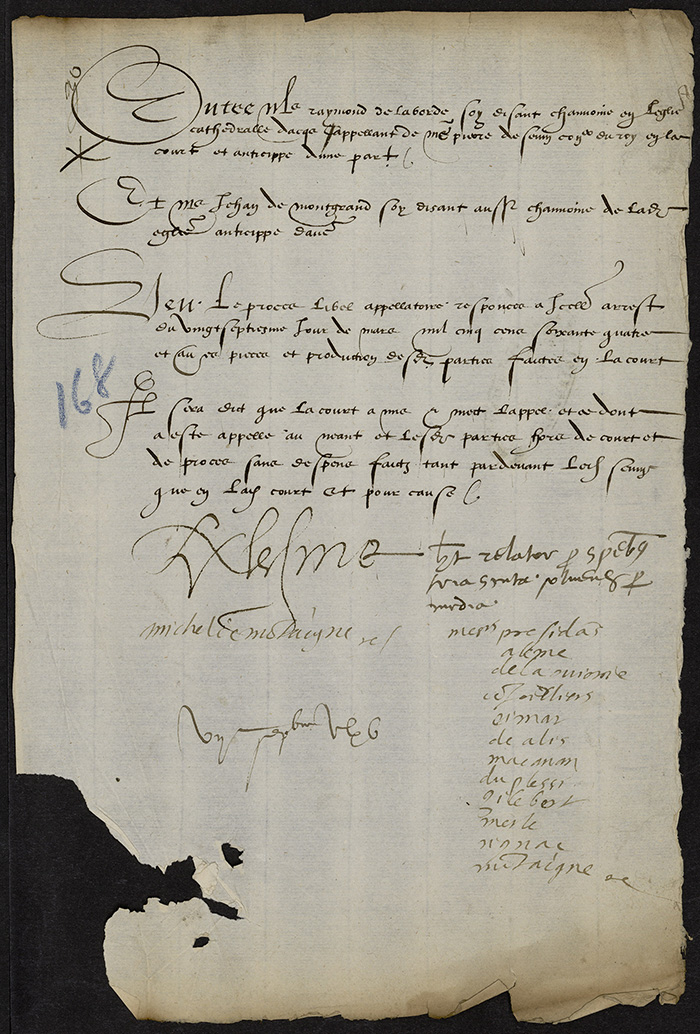 20
X
Entre Me raymond de laborde soy disant channoine en leglise
cathedralle dacqs appellant de Me pierre de seuin coner du roy en la
court et anticippe dune part
Et Me Jehan de montgrand soy disant aussi channoine de lad
eglise anticippe dautre
Veu le proces libel appellatoire responces a Icelluy arrest
du vingtseptiesme Jour de mars mil cinq cens soixante quatre
et autres pieces et production desd parties faictes en la court
168
Il sera dict que la court a mis et mect lappel et ce dont
a este appelle au neant et lesd parties hors de court et
de proces sans despens faictz tant pardevant led seuin
que en lad court Et pour cause
relator
media
michel de montaigne re
mess presidas
aleme
eimar
de alis
macanan
du plessi
gilebert
merle
montaigne re